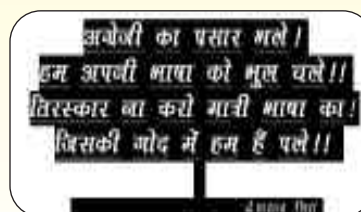 अग्रेजी का पसार भले!
हम अपनी भाषा को भूल चले!!
तिरस्कार ना करो मात्री भाषा का!
जिसकी गोद में हम हैं पले!!